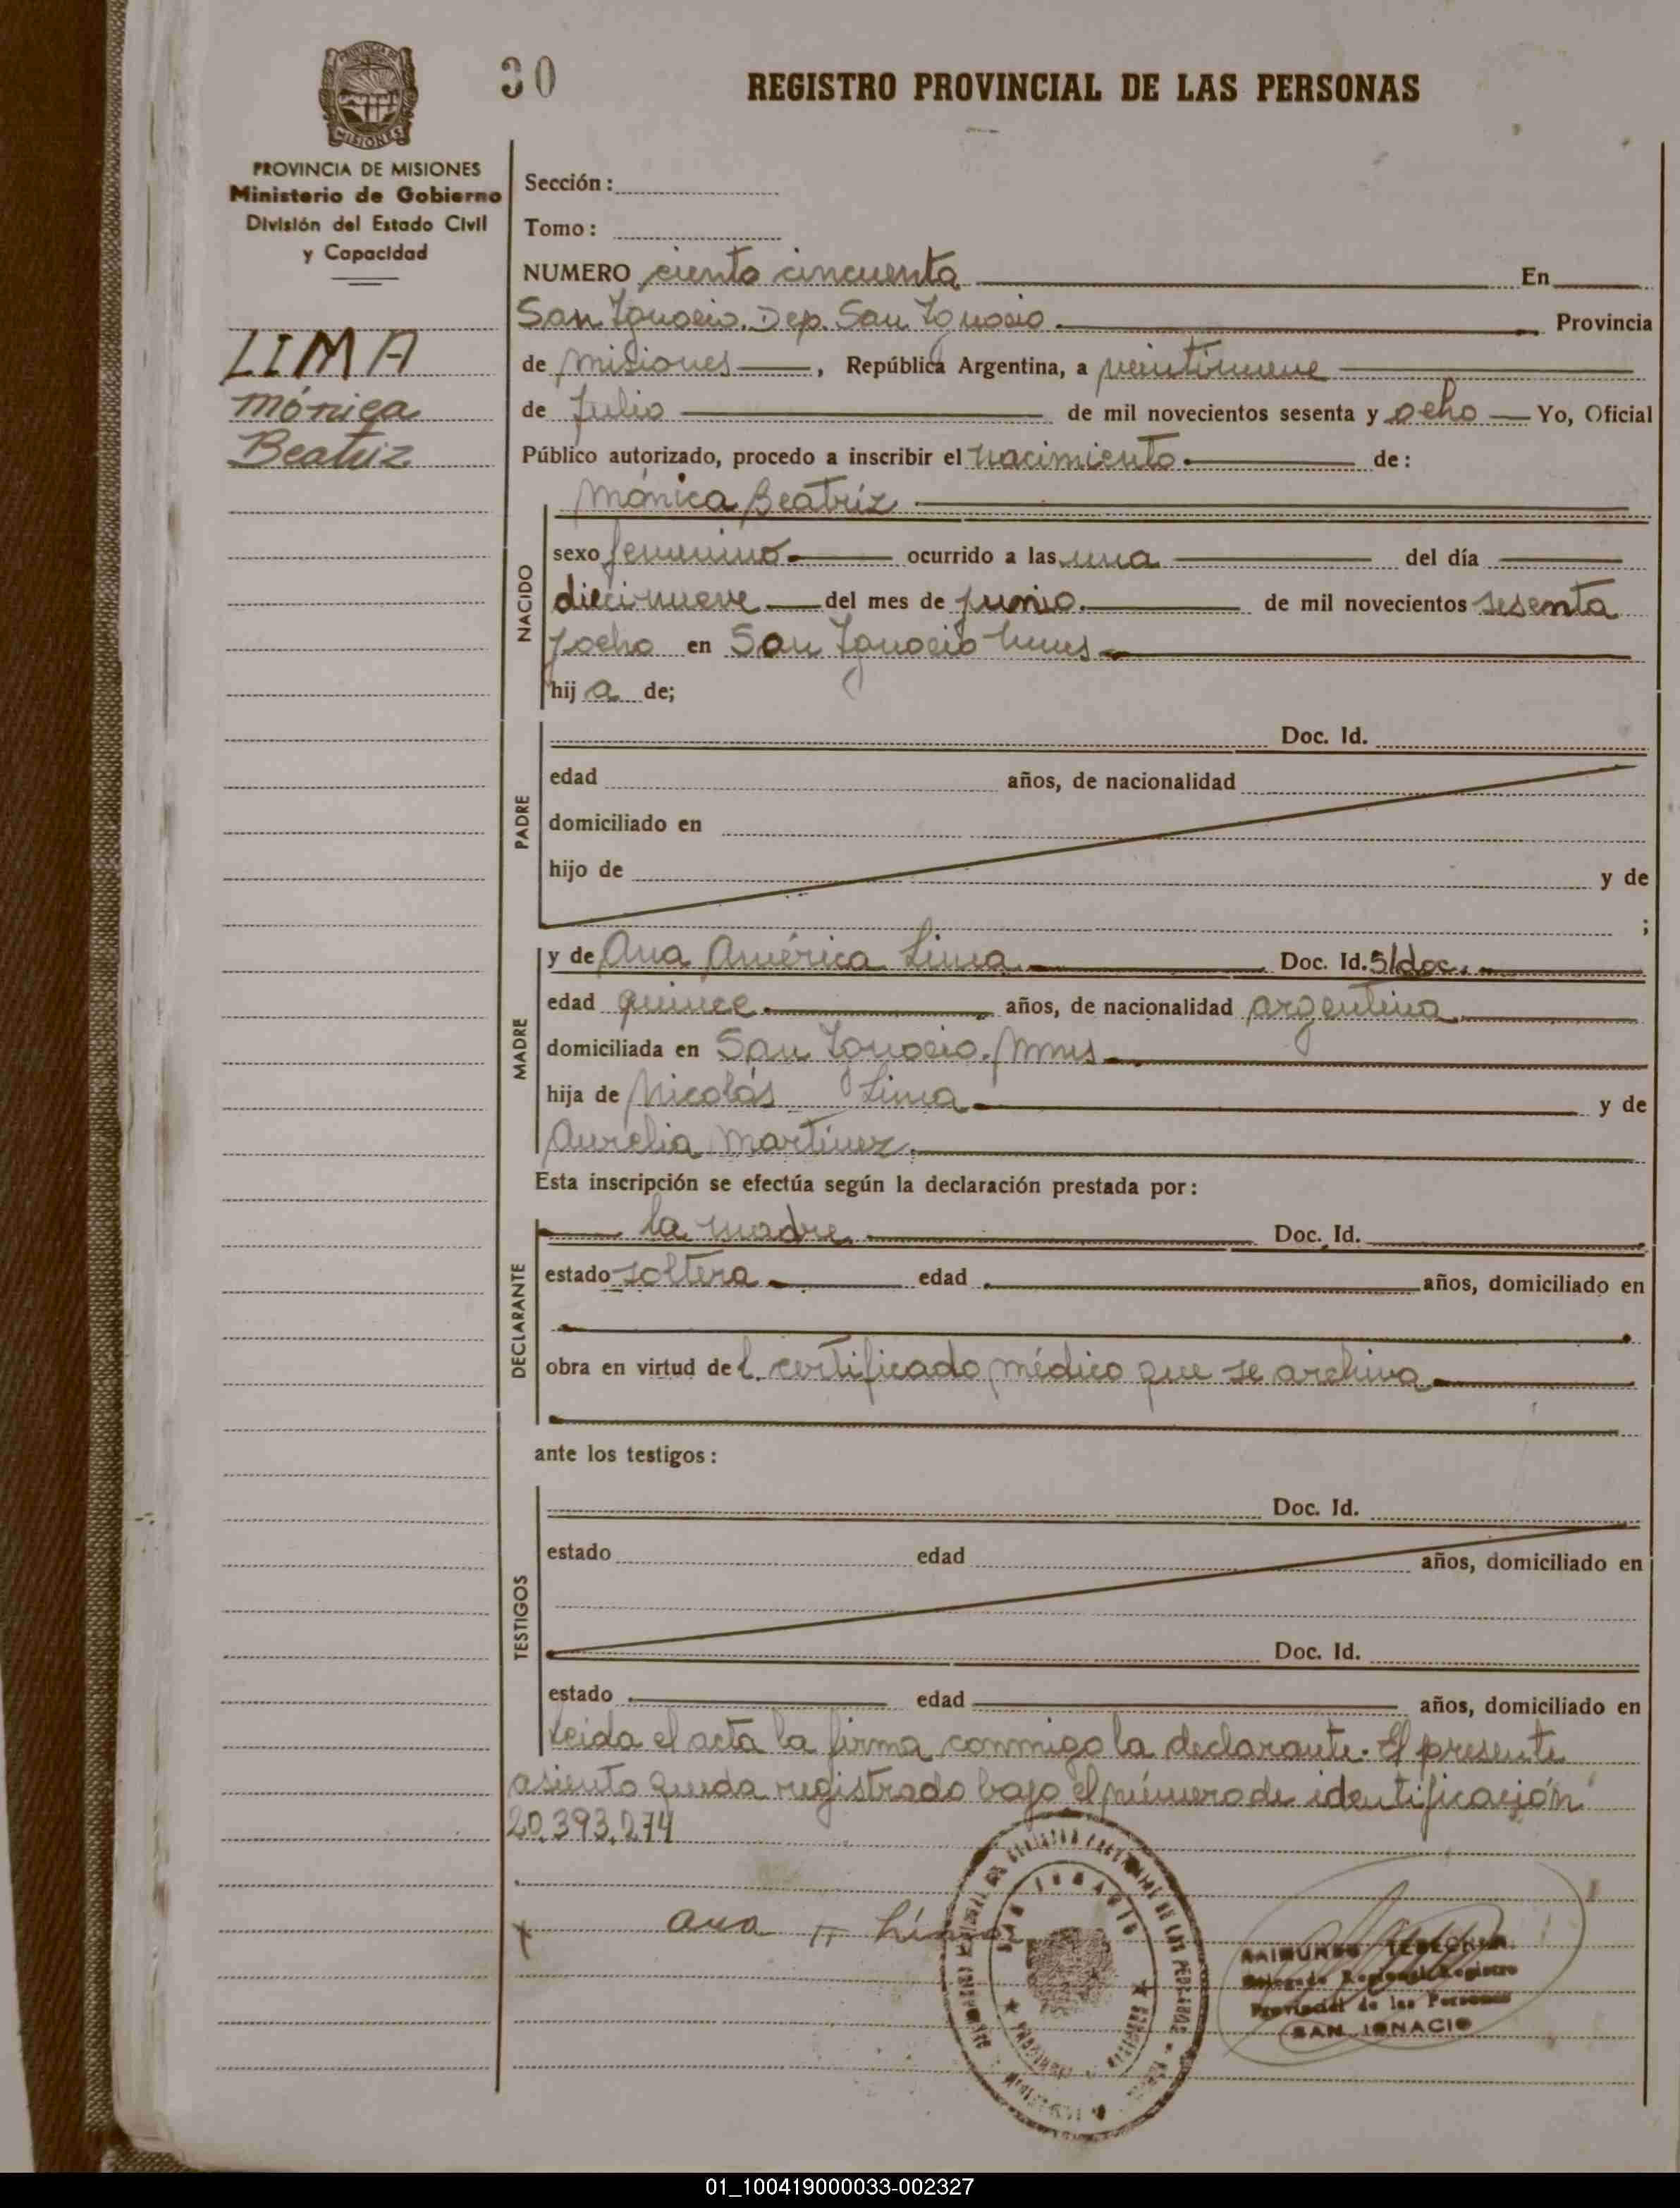 30
REGISTRO PROVINCIAL DE LAS PERSONAS
PROVINCIA DE
MISIONES
PROVINCIA DE MISIONES
Ministerio de Gobierno
División del Estado Civil
y Capacidad
LIMA
Mónica
Beatriz
Sección:
Tomo:
NUMERO ciento cincuenta En
San Ignacio. Dep. San Ignacio. Provincia
de Misiones, República Argentina, a veintinueve
de Julio de mil novecientos sesenta y ocho Yo, Oficial
Público autorizado, procedo a inscribir el nacimiento de:
Mónica Beatríz
NACIDO
sexo femenino ocurrido a las una del día
diecinueve del mes de junio de mil novecientos sesenta
y ocho en San Ignacio Mnes
hij a de;
PADRE
Doc. Id.
edad años, de nacionalidad
domiciliado en
hijo de y de
;
MADRE
y de Ana América Lima Doc. Id. S/doc.
edad quince años, de nacionalidad argentina
domiciliada en San Ignacio. Mnes
hija de Nicolás Lima y de
Aurelia Martínez.
Esta inscripción se efectúa según la declaración prestada por:
DECLARANTE
la madre Doc. Id.
estado soltera edad años, domiciliado en
obra en virtud de l. certificado médico que se archiva
ante los testigos:
TESTIGOS
Doc. Id.
estado edad años, domiciliado en
Doc. Id.
estado edad años, domiciliado en
Leida el acta la firma conmigo la declarante. El presente
asiento queda registrado bajo el número de identificación
20.393.274
Ana Lima
SAN IGNACIO
Delegado Regional Registro
Provincial de las Personas
SAN IGNACIO
01_100419000033-002327